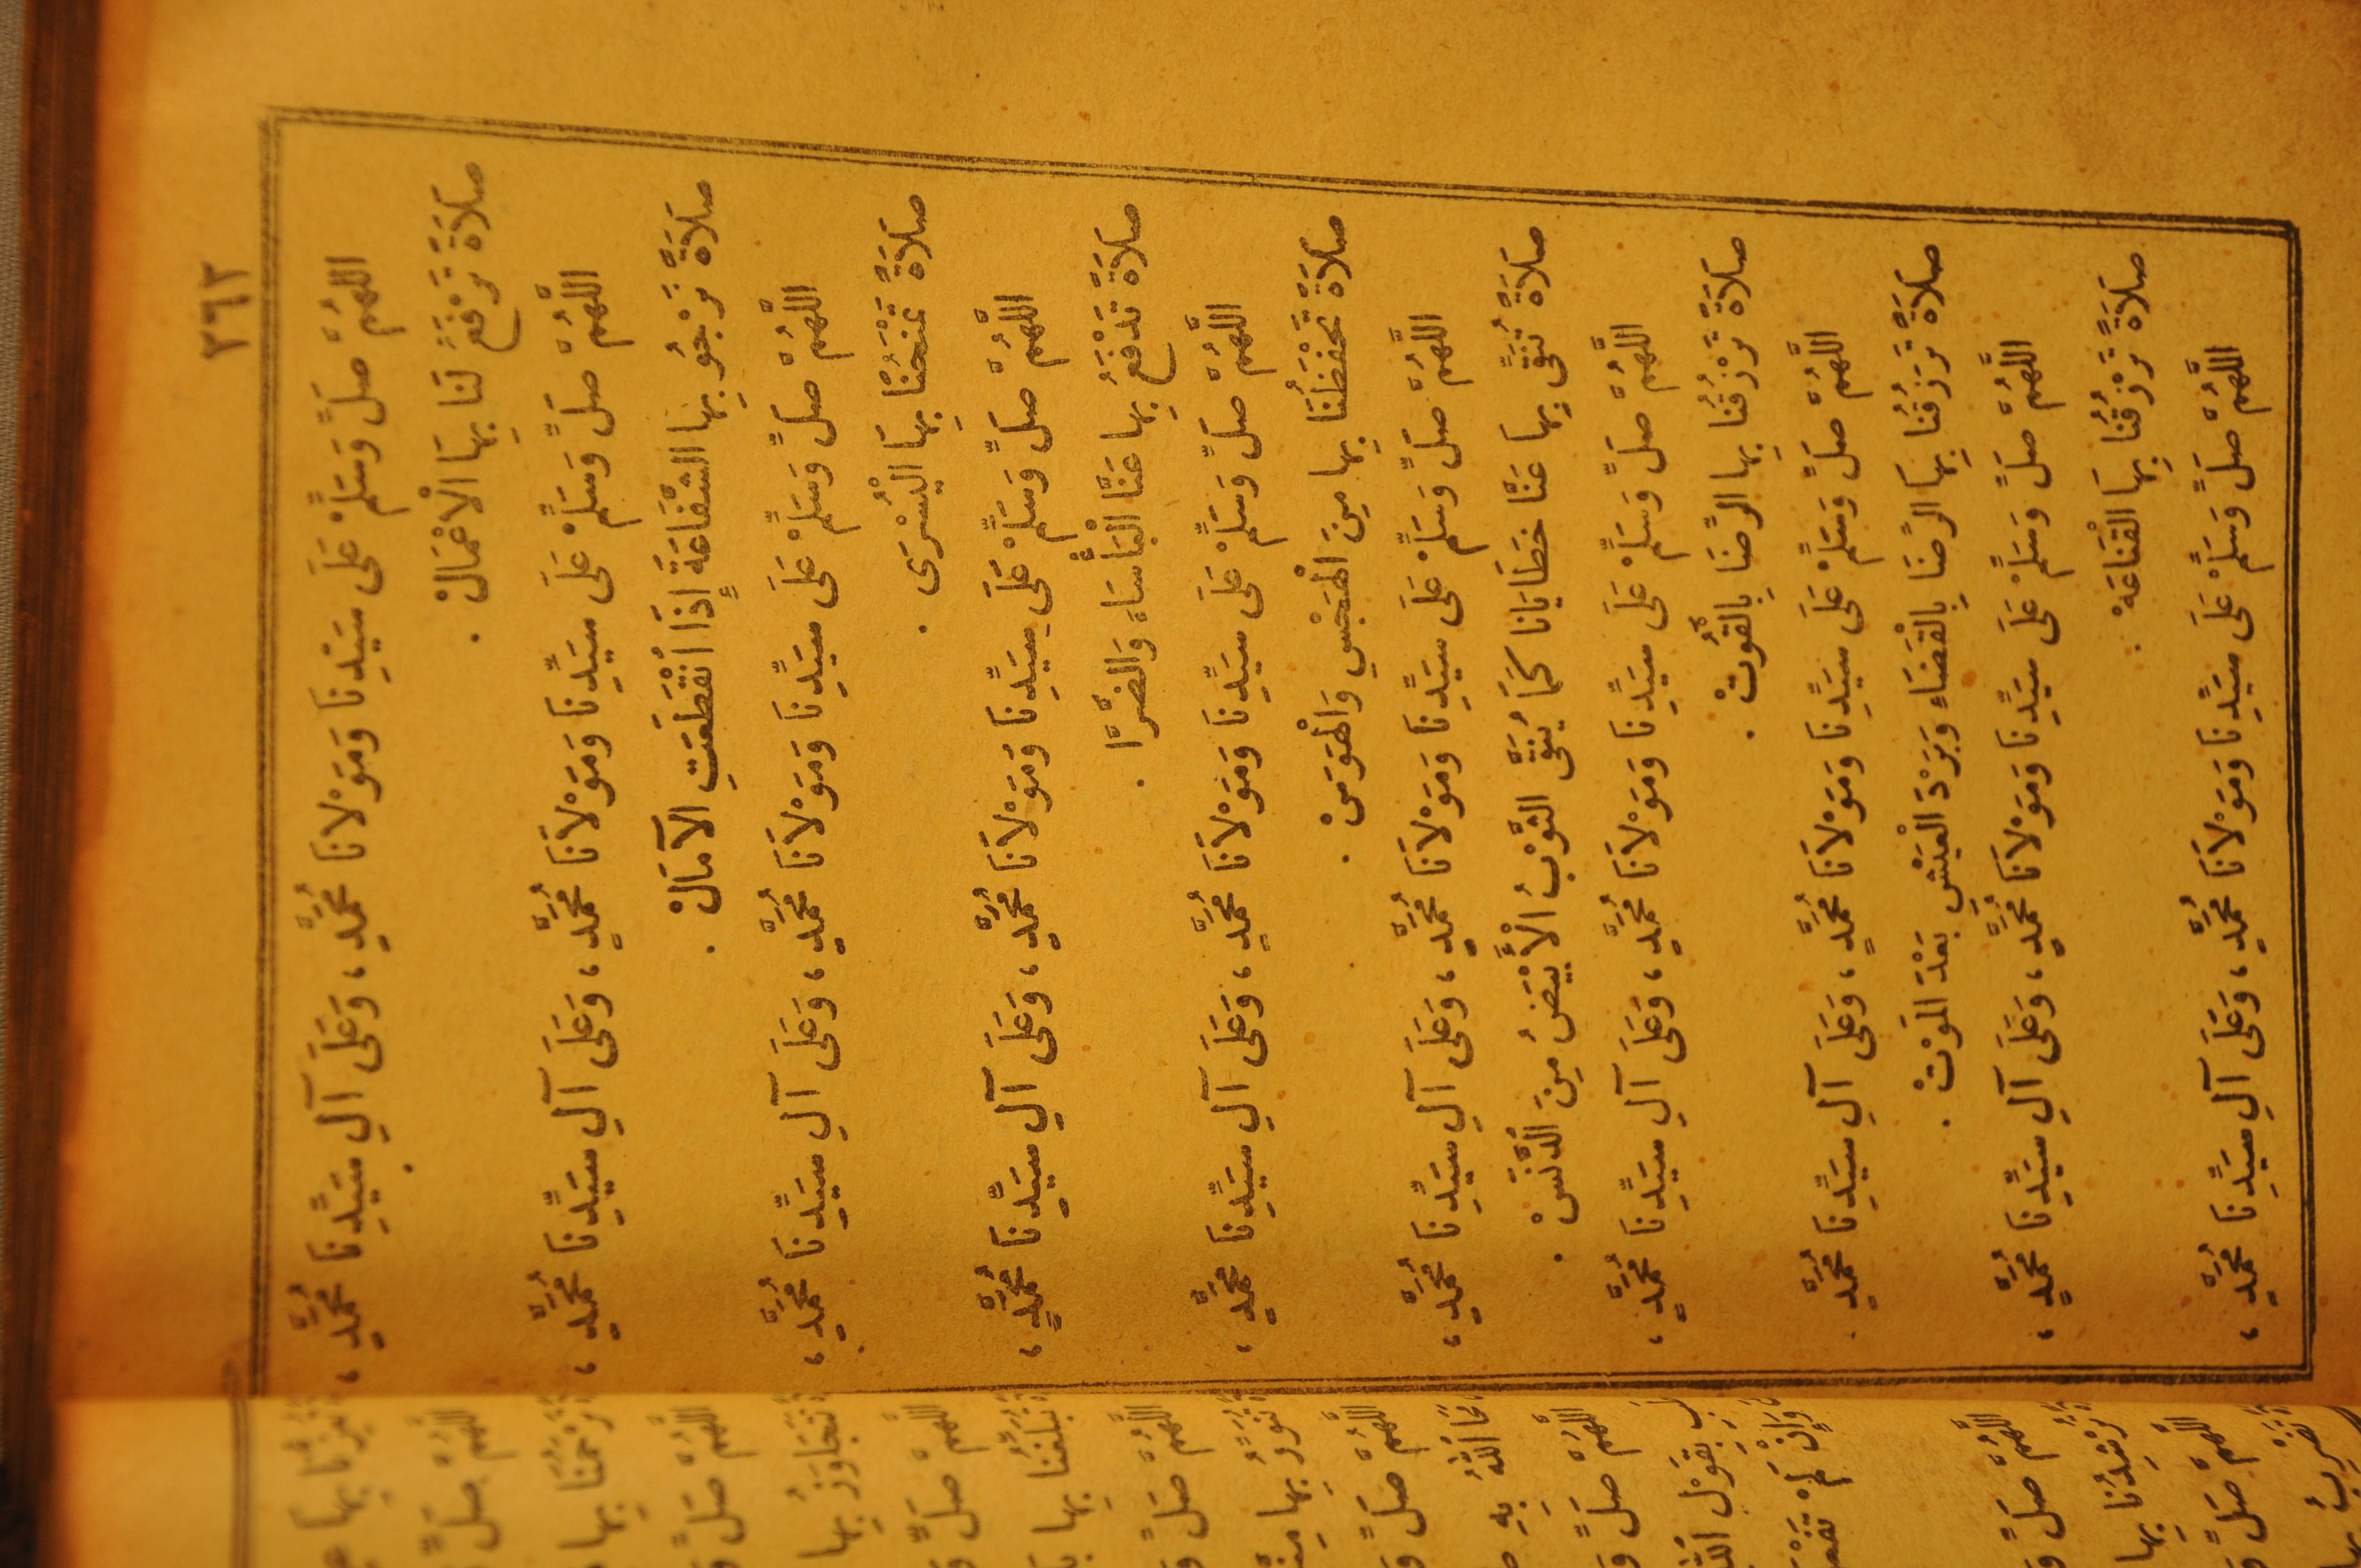 ٣٦٢
اللهُمَّ صَلِّ وَسَلِّمْ عَلَى سَيِّدِنَا وَمَوْلانَا مُحَمَّدٍ، وَعَلَى آلِ سَيِّدِنَا مُحَمَّدٍ،
صَلاَةً تَرْفَعُ لَنَا بِهَا الْاعْمَالْ .
اللَّهُمَّ صَلِّ وَسَلِّمْ عَلَى سَيِّدِنَا وَمَوْلاَنَا مُحَمَّدٍ، وَعَلَى آلِ سَيِّدِنَا مُحَمَّدٍ،
صَلاَةً نَرْجُو بِهَا الشَّفَاعَةَ إِذَا أنْقَطَعَتِ الآمَالْ .
اللَّهُمَّ صَلِّ وَسَلِّمْ عَلَى سَيِّدِنَا وَمَوْلاَنَا مُحَمَّدٍ، وَعَلَى آلِ سَيِّدِنَا مُحَمَّدٍ،
صَلاَةً تَمْنَحُنَا بِهَا الْيُسْرَى .
اللَّهُمَّ صَلِّ وَسَلِّمْ عَلَى سَيِّدِنَا وَمَوْلاَنَا مُحَمَّدٍ، وَعَلَى آلِ سَيِّدِنَا مُحَمَّدٍ،
صَلاَةً تَدْفَعُ بِهَا عَنَّا الْبَأْسَاءَ وَالضَّرَّا .
اللَّهُمَّ صَلِّ وَسَلِّمْ عَلَى سَيِّدِنَا وَمَوْلاَنَا مُحَمَّدٍ، وَعَلَى آلِ سَيِّدِنَا مُحَمَّدٍ،
صَلاَةً تَحْفَظُنَا بِهَا مِنَ الْهَجْسِ وَالْهَوَسْ .
اللَّهُمَّ صَلِّ وَسَلِّمْ عَلَى سَيِّدِنَا وَمَوْلاَنَا مُحَمَّدٍ، وَعَلَى آلِ سَيِّدِنَا مُحَمَّدٍ،
صَلاَةً تُنَقِّى بِهَا عَنَّا خَطَايَانَا كَمَا يُنَقَّى الثَّوْبُ الْأَبْيَضُ مِنَ الدَّنَسْ .
اللَّهُمَّ صَلِّ وَسَلِّمْ عَلَى سَيِّدِنَا وَمَوْلاَنَا مُحَمَّدٍ، وَعَلَى آلِ سَيِّدِنَا مُحَمَّدٍ،
صَلاَةً تَرْزُقُنَا بِهَا الرِّضَا بِالْقُوتْ .
اللَّهُمَّ صَلِّ وَسَلِّمْ عَلَى سَيِّدِنَا وَمَوْلاَنَا مُحَمَّدٍ، وَعَلَى آلِ سَيِّدِنَا مُحَمَّدٍ
صَلاَةً تَرْزُقُنَا بِهَا الرِّضَا بِالْقَضَاءِ وَبَرْدَ الْعَيْشِ بَعْدَ المَوْتْ .
اللَّهُمَّ صَلِّ وَسَلِّمْ عَلَى سَيِّدِنَا وَمَوْلاَنَا مُحَمَّدٍ، وَعَلَى آلِ سَيِّدِنَا مُحَمَّدٍ،
صَلاَةً تَرْزُقُنَا بِهَا الْقَنَاعَهْ .
اللَّهُمَّ صَلِّ وَسَلِّمْ عَلَى سَيِّدِنَا وَمَوْلاَنَا مُحَمَّدٍ، وَعَلَى آلِ سَيِّدِنَا مُحَمَّدٍ،
بِهَا
اللَّهُمَّ صَلِّ
بِهَا
اللَّهُمَّ صَلِّ
تَتَجَاوَزُ بِهَا
اللَّهُمَّ صَلِّ
تُبَلِّغُنَا بِهَا
اللَّهُمَّ صَلِّ
بِهَا
اللَّهُمَّ صَلِّ
اللهُ بِهِ
اللَّهُمَّ صَلِّ
بِقَوْلِ
وَإِنْ لَمْ
اللَّهُمَّ صَلِّ
بِهَا
اللَّهُمَّ صَلِّ